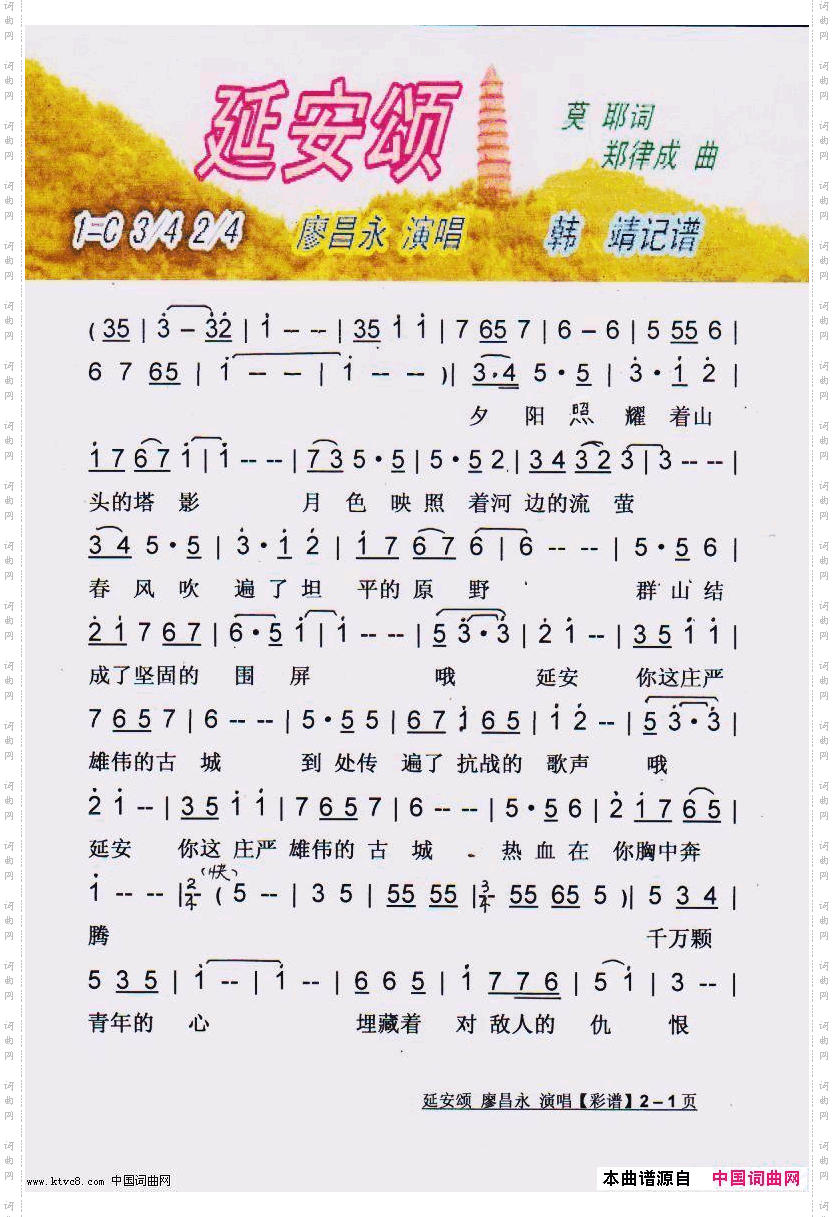 延安颂
莫 耶词
郑律成 曲
1=C 3/4 2/4 廖昌永 演唱 韩 靖记谱
( 35 | 3 – 32 | 1 – – | 35 1 1 | 7 65 7 | 6 – 6 | 5 55 6 |
6 7 65 | 1 – – | 1 – – )| 3·4 5·5 | 3·1 2 |
夕 阳 照 耀 着山
17 67 1 | 1 -- -- | 73 5·5 | 5·5 2 | 34 32 3 | 3 -- -- |
头的塔 影 月 色 映 照 着河 边的流 萤
34 5·5 | 3·1 2 | 17 67 6 | 6 -- -- | 5·5 6 |
春 风 吹 遍 了 坦 平的 原 野 群 山 结
21 7 67 | 6·5 1 | 1 -- -- | 5 3·3 | 2 1 -- | 35 1 1 |
成了坚固的 围 屏 哦 延安 你这庄严
7 65 7 | 6 -- -- | 5·5 5 | 67 1 65 | 1 2 -- | 5 3·3 |
雄伟的古 城 到 处传 遍了 抗战的 歌声 哦
2 1 -- | 35 1 1 | 7 65 7 | 6 -- -- | 5·5 6 | 2 17 65 |
延安 你这 庄严 雄伟的 古 城 热 血 在 你胸中奔
1 -- -- |2/4 (快) ( 5 -- | 3 5 | 55 55 |3/4 55 65 5 )| 5 34 |
腾 千万颗
5 35 | 1 -- | 1 -- | 6 6 5 | 1 7 76 | 5 1 | 3 -- |
青年的 心 埋藏着 对 敌人的 仇 恨
延安颂 廖昌永 演唱【彩谱】2－1页
www.ktvc8.com 中国词曲网
本曲谱源自 中国词曲网